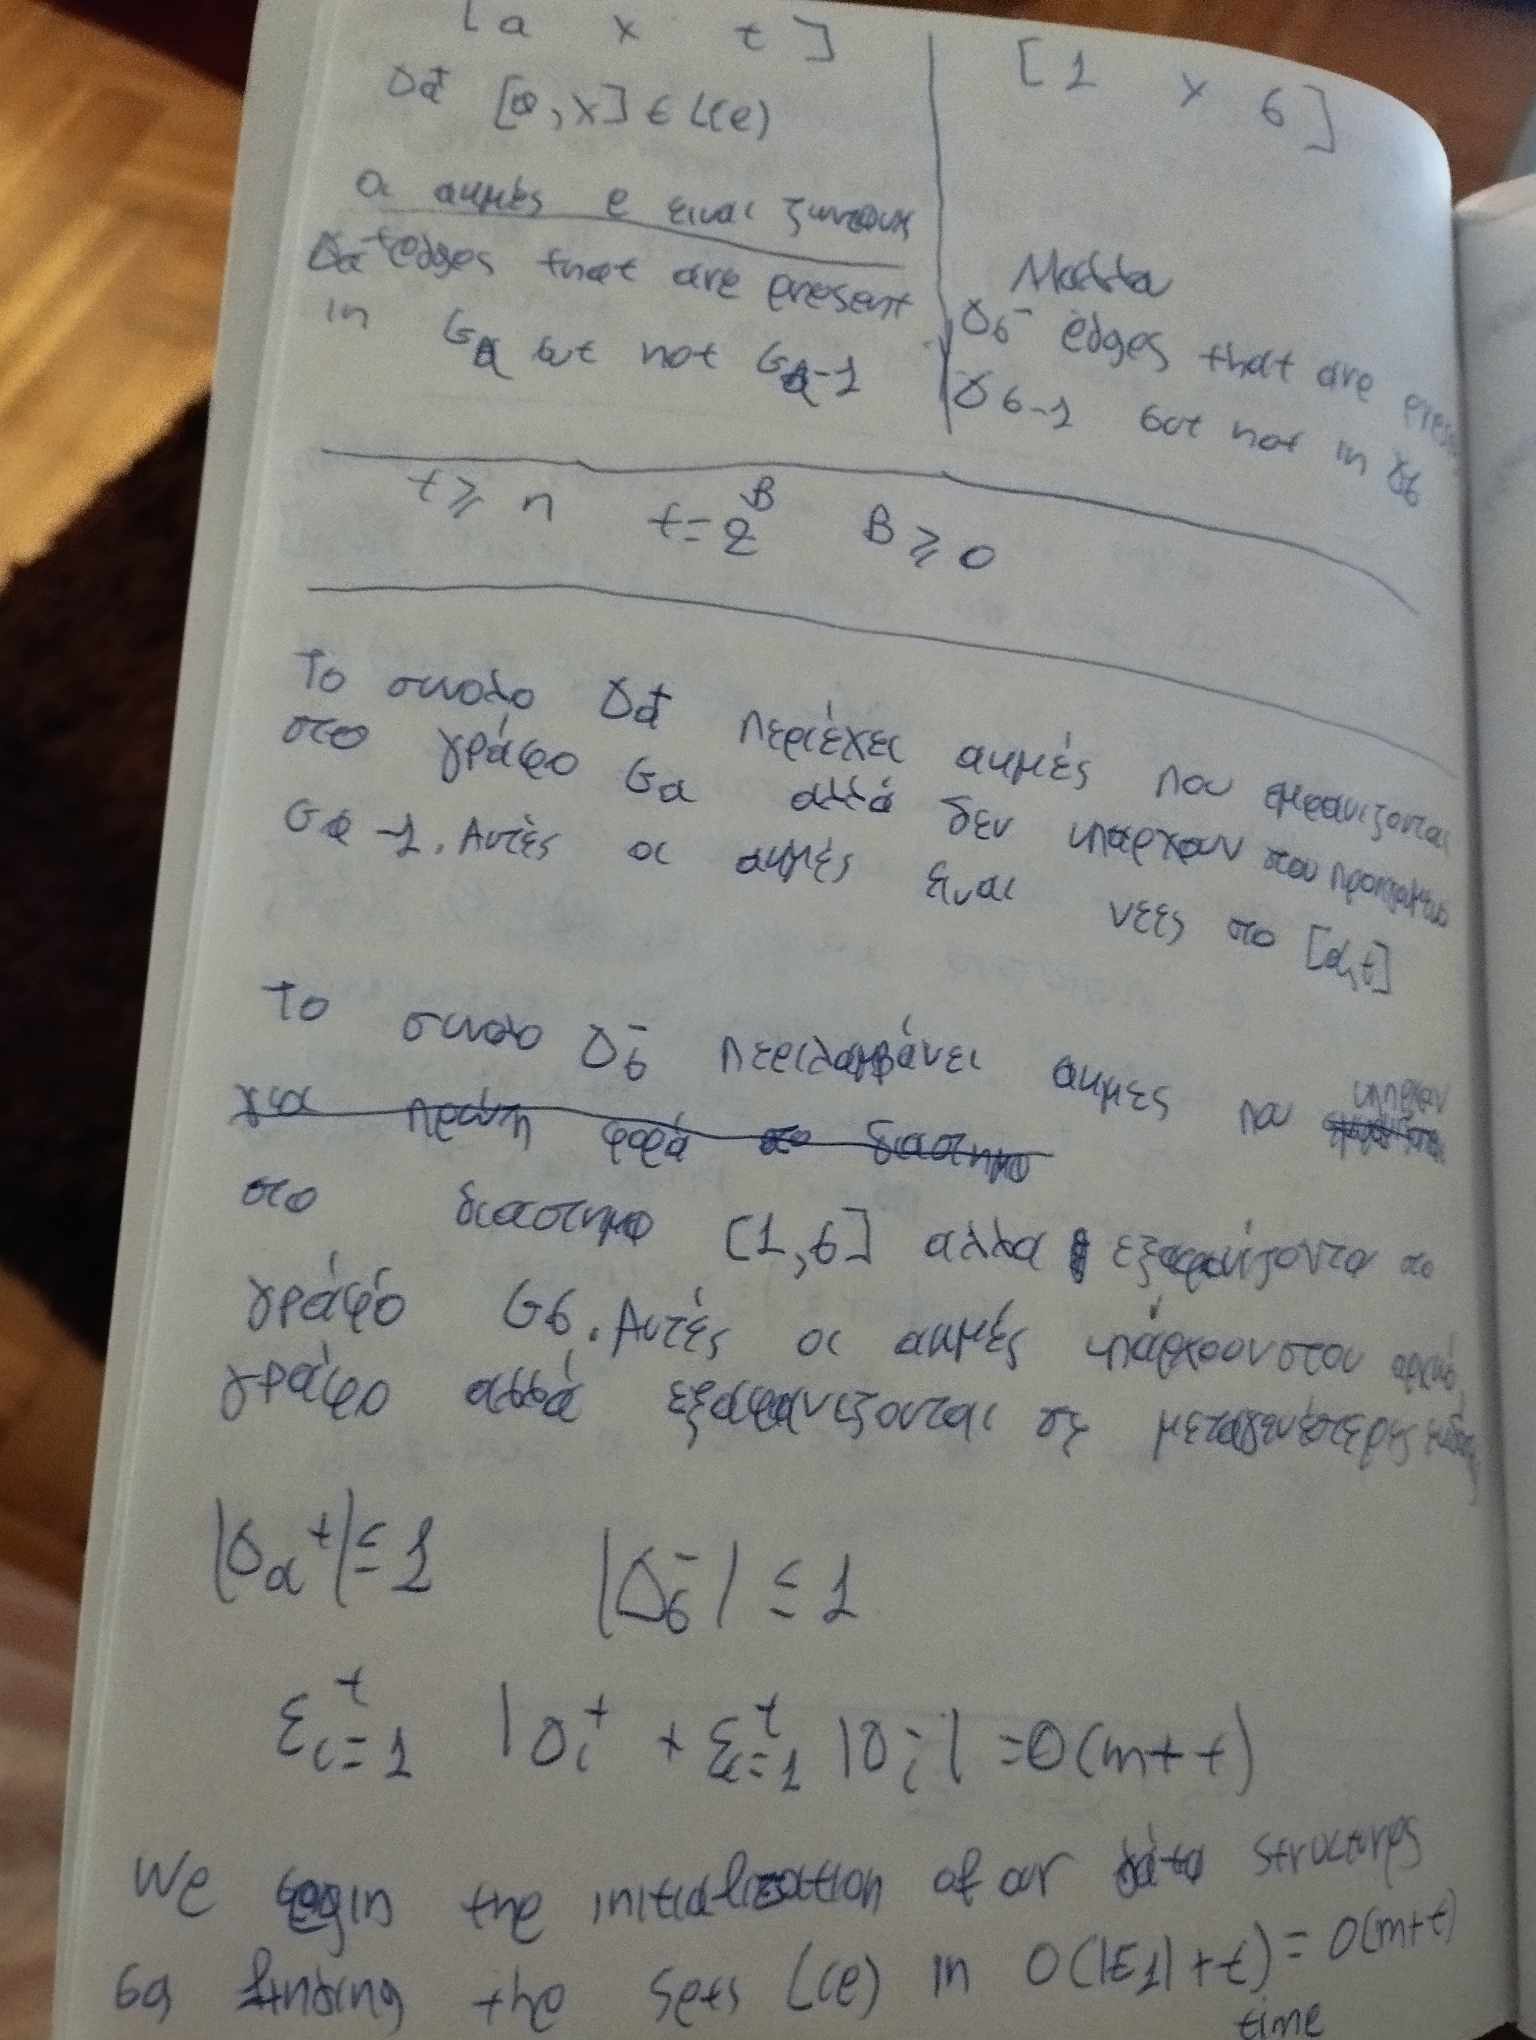 [a x t]
[1 x 6]
Δα⁺ [α, x] ∈ L(e)
α ακμές e ειναι
Δα⁺ edges that are present
in Gα but not Gα-1
Δ6⁻ edges that are
Δ6-1 but not in
t ≥ n t = 2^B B ≥ 0
Το συνολο Δα⁺ περιέχει ακμές που εμφανιζονται
στο γράφο Gα αλλά δεν υπαρχουν στον
Gα-1. Αυτές οι ακμές ειναι νεες στο [α, t]
Το συνολο Δ6⁻ περιλαμβάνει ακμες που υπηρχαν
για πρώτη φορά στο διαστημα
στο διαστημα [1, 6] αλλα εξαφανίζοντα στο
γράφό G6. Αυτές οι ακμές υπάρχουν στον
γράφο αλλά εξαφανιζονται σε
|Δα⁺| ≤ 1 |Δ6⁻| ≤ 1
Σ i=1 t |Δi⁺ + Σ i=1 t |Δi⁻| = O(m+t)
We begin the initialization of our data structures
by finding the sets L(e) in O(|E1|+t) = O(m+t)
time